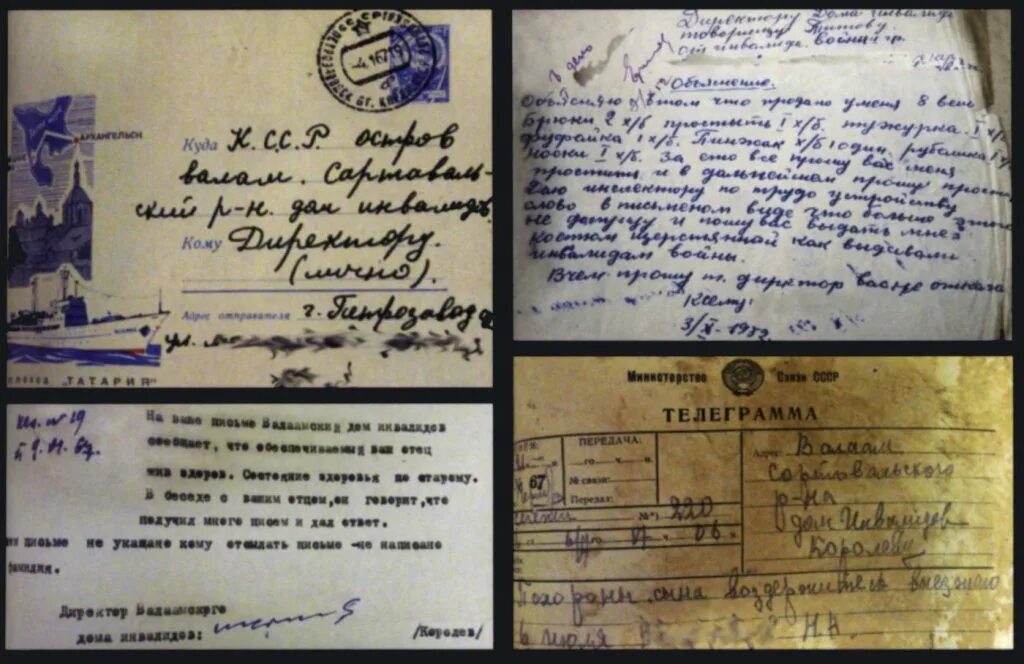 АРХАНГЕЛЬСК
4.1.67 19
Куда К.С.С.Р остров
валам. Сартаваль-
ский р-н. дом инвалидов
Кому Директору.
(лично).
Адрес отправителя г. Петрозавод
ул.
ТЕПЛОХОД „ТАТАРИЯ"
Директору Дома инвалидов
товарищу Титову.
от инвалида. войны гр.
в дело
Объяснение.
Объясняю в том что продано у меня 8 вещ
Брюки 2 х/б простынь 1 х/б. тужурка 1 х/б
фуфайка 1 х/б. Пиджак х/б один. рубашка 1
носки 1 х/б. За это все прошу вас меня
простить и в дальнейшем прошу
Даю инспектору по трудо устройству
слово в писменом виде что больше этого
не допущу и прошу вас выдать мне
костюм шерстянной как выдавали
инвалидам войны.
В чем прошу т. директор
К сему:
3/X-1952
На ваше письмо Валаамский дом инвалидов
сообщает, что обеспечиваемый ваш отец
жив здоров. Состояние здоровья по старому.
В беседе с вашим отцем, он говорит, что
получил много писем и дал ответ.
письме не указано кому отсылать письмо -не написано
фамилия.
Директор Валаамскрго
дома инвалидов:
/Королев/
Министерство Связи СССР
ТЕЛЕГРАММА
ПЕРЕДАЧА:
го ч. м.
№ связи:
Передал:
67
№ 220
Адрес: Валаам
Сортовальского
р-на
дом Инвалидов
Королеву
Похороны сына воздержитесь выезжаю
6 июля